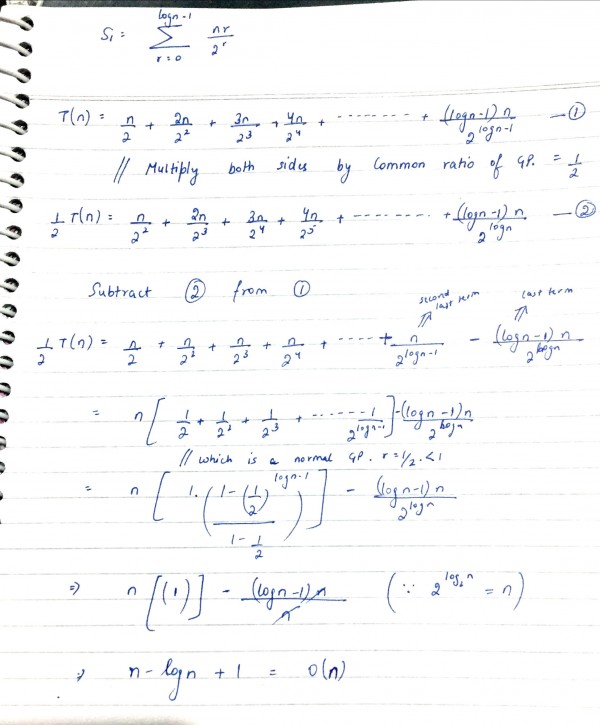 S₁ = Σ_{r=0}^{logn-1} nr/2^r
T(n) = n/2 + 2n/2² + 3n/2³ + 4n/2⁴ + -------- + (logn-1)n/2^{logn-1} — ①
// Multiply both sides by Common ratio of GP. = 1/2
1/2 T(n) = n/2² + 2n/2³ + 3n/2⁴ + 4n/2⁵ + -------- + (logn-1)n/2^{logn} — ②
Subtract ② from ①
second last term
last term
1/2 T(n) = n/2 + n/2² + n/2³ + n/2⁴ + ----- + n/2^{logn-1} - (logn-1)n/2^{logn}
= n [ 1/2 + 1/2² + 1/2³ + ------- 1/2^{logn-1} ] - (logn-1)n/2^{logn}
// which is a normal GP. r = 1/2 . < 1
= n [ 1. ( (1 - (1/2)^{logn-1}) / (1 - 1/2) ) ] - (logn-1)n/2^{logn}
⇒ n [(1)] - (logn-1)n/n ( ∵ 2^{log₂n} = n )
⇒ n - logn + 1 = O(n)